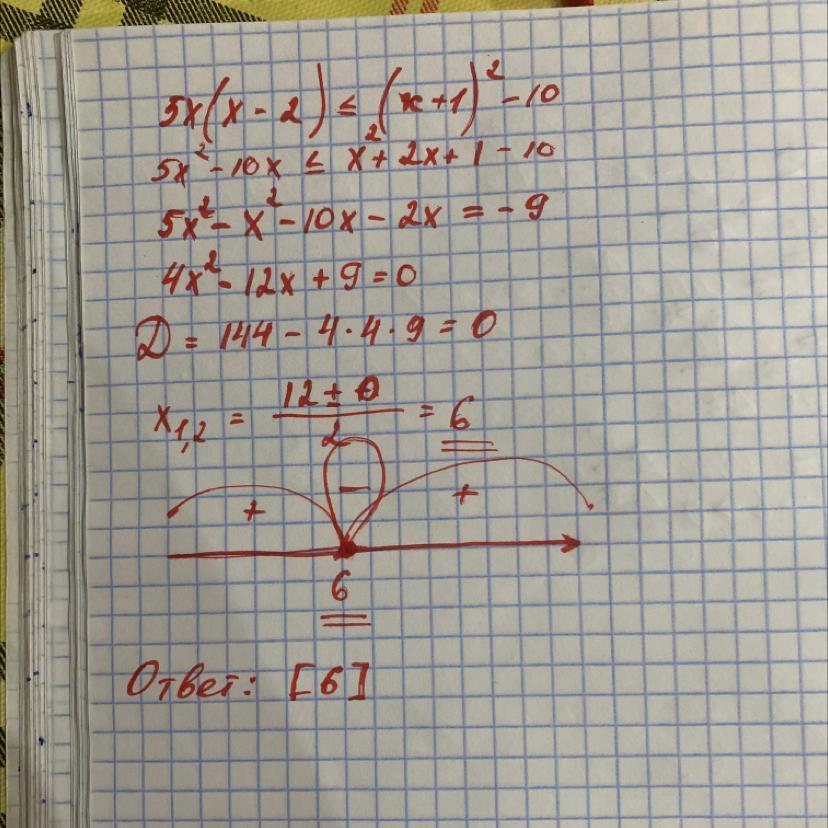 5x(x - 2) ≤ (x+1)² - 10
5x² - 10x ≤ x² + 2x + 1 - 10
5x² - x² - 10x - 2x = - 9
4x² - 12x + 9 = 0
D = 144 - 4 · 4 · 9 = 0
x₁,₂ = (12 ± 0)/2 = 6
+ - +
6
Ответ: [6]